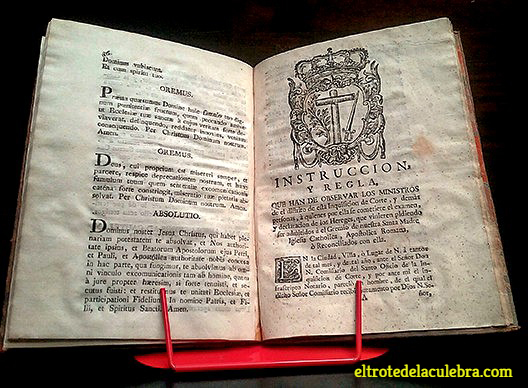 96
Dominus vobiscum.
Et cum spiritu tuo.
OREMUS.
Præsta quæsumus Domine huic famulo tuo dig-
num pœnitentiæ fructum,
ut Ecclesiæ tuæ sanctæ, à cujus
viaverat, delinquendo, reddatur innoxius, veniam
consequendo. Per Christum Dominum nostrum.
Amen.
OREMUS.
Deus, cui proprium est misereri semper, et
parcere, respice deprecationem nostram, et hunc
famulum tuum quem sententia excommunicationis
catena constringit, miseratio tuæ pietatis ab-
solvat. Per Christum Dominum nostrum. Amen.
ABSOLUTIO.
Dominus noster Jesus Christus, qui habet ple-
nariam potestatem te absolvat, et Nos authori-
tate ipsius, et Beatorum Apostolorum ejus Petri,
et Pauli, et Apostolica authoritate nobis concessa
in hac parte, qua fungimur, te absolvimus ab om-
ni vinculo excommunicationis tam ab homine, quam
à jure propter hæresim, si forte tenuisti, et se-
cutus fuisti: et restituimus te unitati Ecclesiæ, et
participationi Fidelium. In nomine Patris, et Fi-
lii, et Spiritus Sancti. Amen.
INSTRUCCION,
Y REGLA,
QUE HAN DE OBSERVAR LOS MINISTROS
de el distrito de esta Inquisicion de Corte, y demás
personas, à quienes por ella se cometiere el examen,
y declaracion de los Hereges, que vinieren pidiendo
ser admitidos à el Gremio de nuestra Santa Madre
Iglesia Catholica, Apostolica Romana,
ò Reconciliados con ella.
EN la Ciudad, Villa, ò Lugar de N. à tantos
de tal mes, y de tal año, ante el Señor Don
N. Comisario del Santo Oficio de la In-
quisicion de Corte, y por ante mì el in-
frascripto Notario, pareciò un hombre, de el qual el
dicho Señor Comisario recibiò juramento por Dios N. Se-
A ñor,
eltrotedelaculebra.com